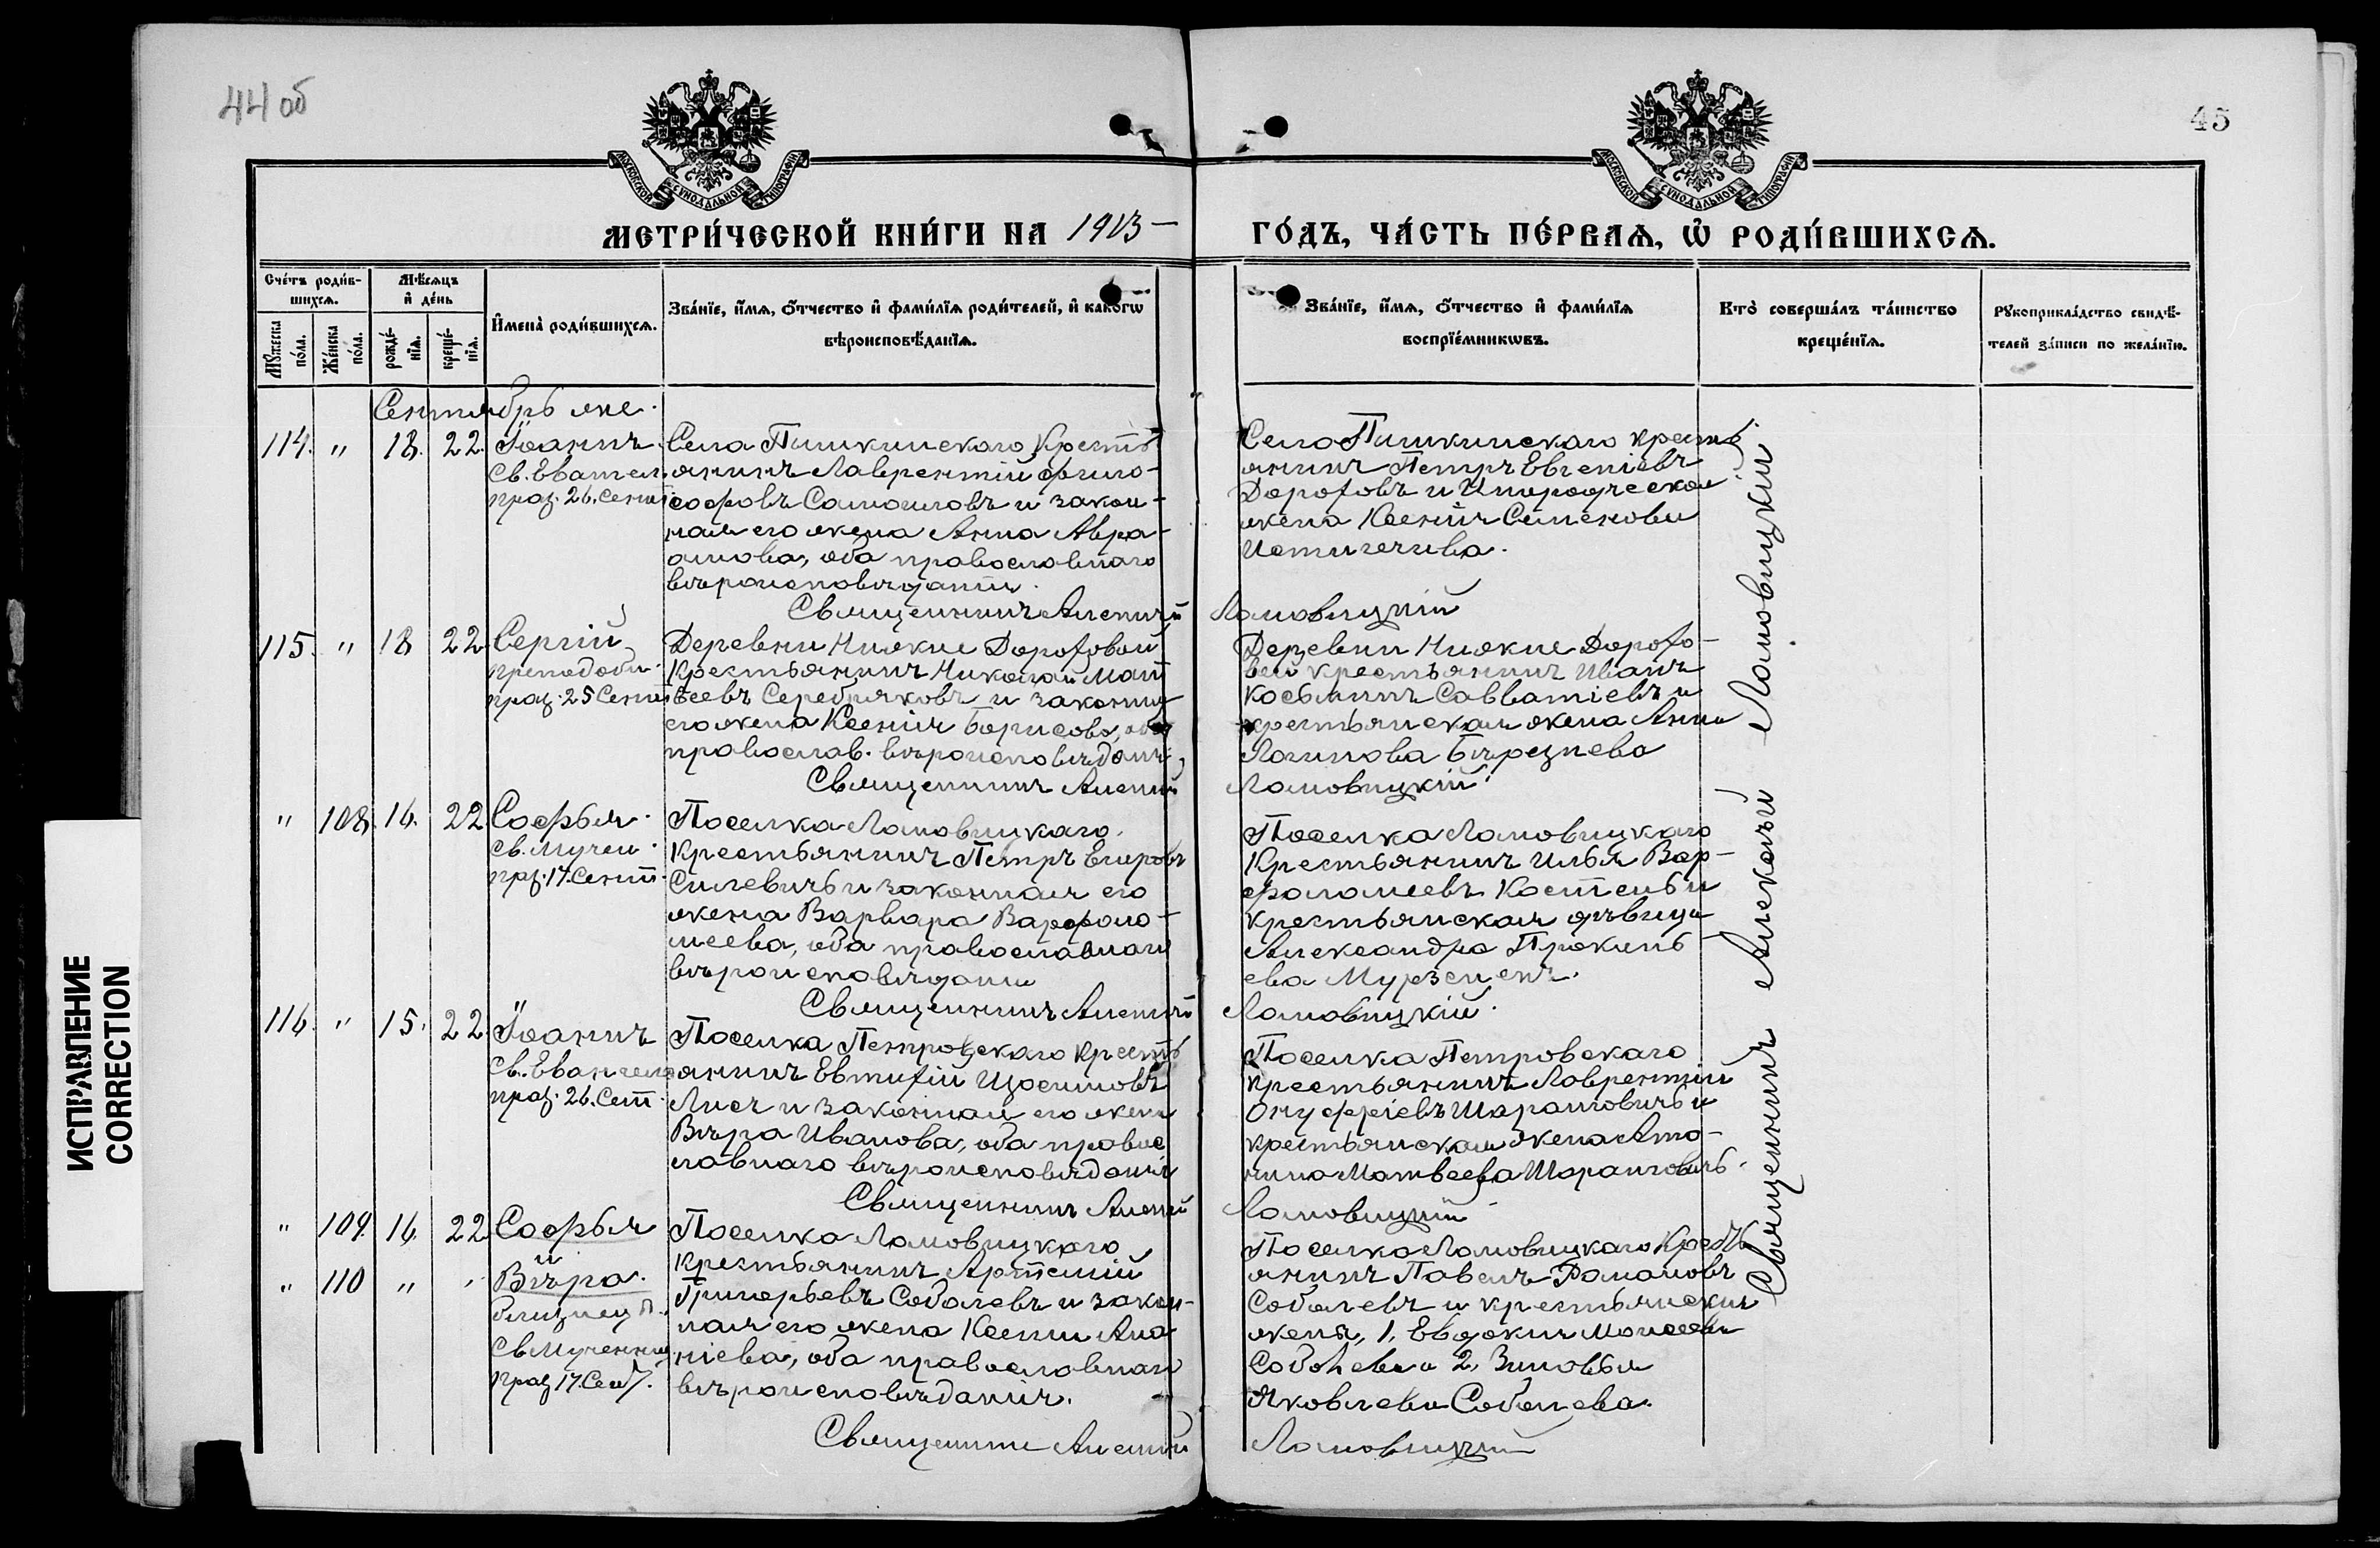 44 об
45
МОСКОВСКОЙ СѴНОДАЛЬНОЙ ТИПОГРАФІИ
МОСКОВСКОЙ СѴНОДАЛЬНОЙ ТИПОГРАФІИ
МЕТРИ́ЧЕСКОЙ КНИ́ГИ НА 1913
ГО́ДЪ, ЧА́СТЬ ПЕ́РВАѦ, Ѡ РОДИ́ВШИХСѦ.
Сче́тъ роди́в-
шихсѧ.
Мѣ́сѧцъ
и҆ де́нь
Мꙋ́жеска по́ла.
Же́нска по́ла.
рожде́-нїѧ.
креще́-нїѧ.
И҆мена̀ роди́вшихсѧ.
Зва́нїе, и҆́мѧ, ѻ҆́тчество и҆ фами́лїѧ роди́телей, и҆ како́гѡ
вѣроисповѣ́данїѧ.
Зва́нїе, и҆́мѧ, ѻ҆́тчество и҆ фами́лїѧ
воспрїе́мникѡвъ.
Кто̀ соверша́лъ та́инство
креще́нїѧ.
Рꙋкоприкла́дство свидѣ́-
телей за́писи по жела́нїю.
Сентябрь мѣ.
114. " 18. 22. Іоаннъ
Св. Евангел.
праз. 26. Сент.
Села Пишкинскаго Кресть
янинъ Лаврентій Фило-
софовъ Самойловъ и закон-
ная его жена Анна Авра-
амова, оба православнаго
вѣроисповѣданія.
Село Пишкинскаго кресть
янинъ Петръ Евгеніевъ
Дорофовъ и
жена Ксенія Семенова
Священникъ Алексій Ломовицкій
115. " 18 22 Сергій
преподобн.
праз. 25 Сент
Деревни Нижне Дорофовой
Крестьянинъ Николай Мат
ѳеевъ Серебряковъ и законная
его жена Ксенія Борисова, оба
православ. вѣроисповѣданія,
Деревни Нижне Дорофо-
вой крестьянинъ Иванъ
Косьминъ Савватіевъ и
крестьянская жена Анна
Логинова Бѣрезнева
Священникъ Алексій Ломовицкій
" 108. 16. 22. Софья
св. мучен.
праз. 17. Сент.
Поселка Ломовицкаго
Крестьянинъ Петръ Егоровъ
Силевичъ и законная его
жена Варвара Варфоло-
меева, оба православнаго
вѣроисповѣданія
Поселка Ломовицкаго
Крестьянинъ Илья Вар-
фоломеевъ Костень и
крестьянская дѣвица
Александра Прокопь
ева
Священникъ Алексій Ломовицкій
116. " 15. 22. Іоаннъ
Св. Евангел
праз. 26. Сент.
Поселка Петровскаго кресть
янинъ Евтихій
Лисъ и законная его жена
Вѣра Иванова, оба правос
лавнаго вѣроисповѣданія
Поселка Петровскаго
крестьянинъ Лаврентій
Онуфріевъ Шаранговичъ и
крестьянская жена Анто-
нина Матвеева Шаранговичъ.
Священникъ Алексій Ломовицкій
" 109. 16. 22 Софья
и
" 110 " " Вѣра.
близнецы
Св Мученниц
праз 17. Сент.
Поселка Ломовицкаго
крестьянинъ Артемій
Григорьевъ Соболевъ и закон-
ная его жена Ксенія Ана
ніева, оба православнаго
вѣроисповѣданія.
Поселка Ломовицкаго Кресть
янинъ Павелъ Романовъ
Соболевъ и крестьянскія
жены, 1, Евдокия Моисеева
Соболева и 2, Зиновья
Яковлева Соболева.
Священникъ Алексій Ломовицкій
Священникъ Алексѣй Ломовицкій
ИСПРАВЛЕНИЕ
CORRECTION